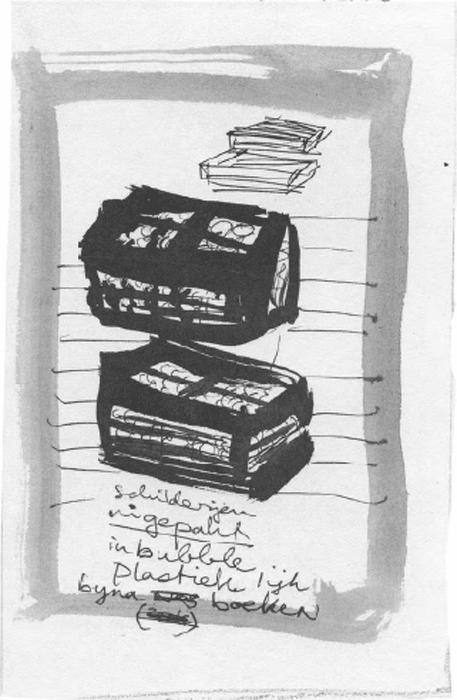 schilderijen
ingepakt
in bubble
Plastiek lijk
byna boeken